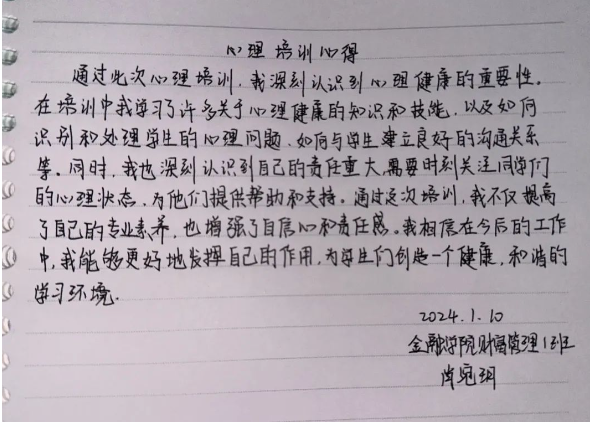 心理培训心得
通过此次心理培训,我深刻认识到心理健康的重要性。
在培训中我学习了许多关于心理健康的知识和技能,以及如何
识别和处理学生的心理问题、如何与学生建立良好的沟通关系
等。同时,我也深刻认识到自己的责任重大,需要时刻关注同学们
的心理状态,为他们提供帮助和支持。通过这次培训,我不仅提高
了自己的专业素养,也增强了自信心和责任感。我相信在今后的工作
中,我能够更好地发挥自己的作用,为学生们创造一个健康,和谐的
学习环境.
2024.1.10
金融学院财富管理1班
肖宛玥